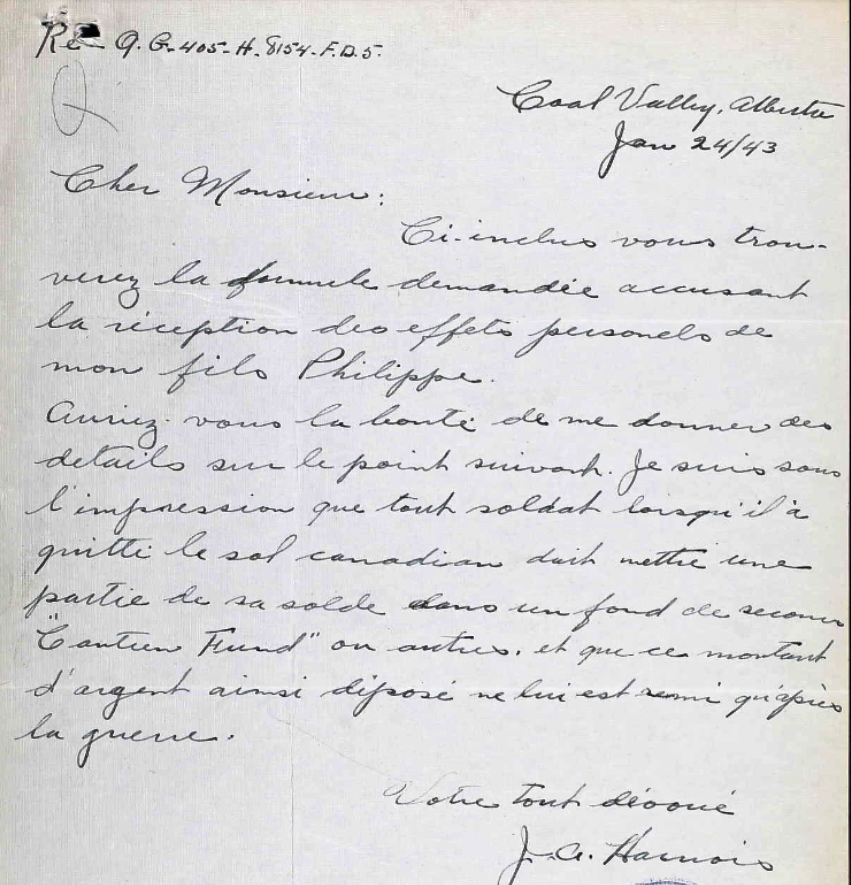 Re Q. G. 405-H. 8154-F.D.5.
Coal Valley, Alberta
Jan 24/43
Cher Monsieur:
Ci-inclus vous trou-
verez la formule demandée accusant
la réception des effets personels de
mon fils Philippe.
Auriez-vous la bonté de me donner des
details sur le point suivant. Je suis sous
l'impression que tout soldat lorsqu'il à
quitté le sol canadian doit mettre une
partie de sa solde dans un fond de secours
"Canteen Fund" ou autres. et que ce montant
d'argent ainsi déposé ne lui est remi qu'après
la guerre.
Votre tout dévoué
J.A. Harnois